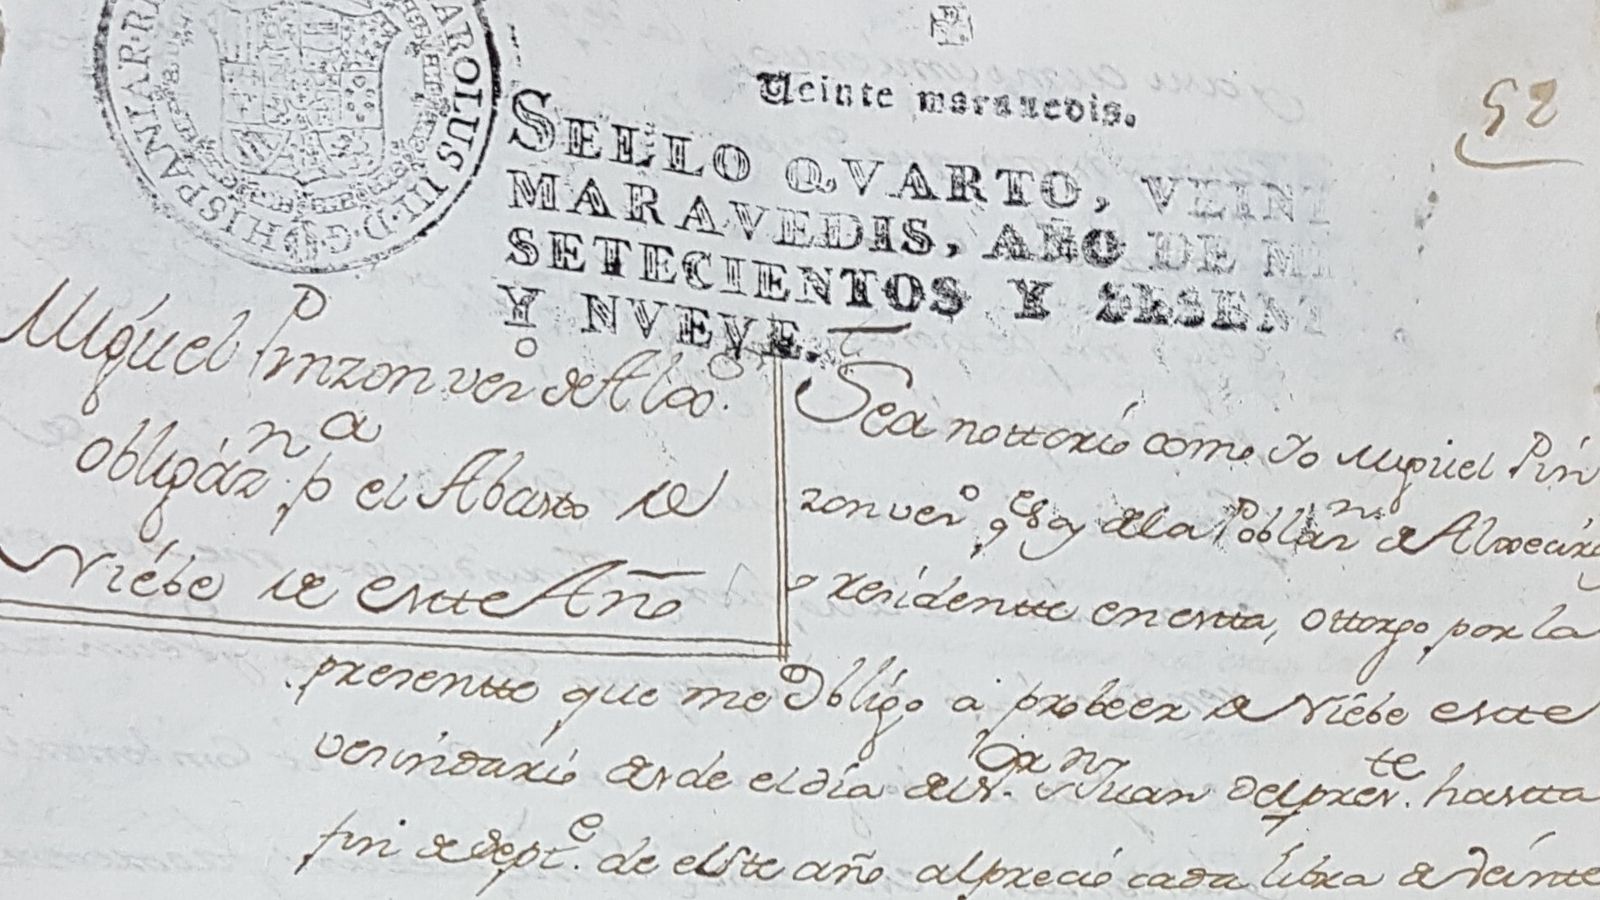 CAROLUS III·D·G·HISPANIAR·RE
Veinte maravedis.
52
SELLO QVARTO, VEINT
MARAVEDIS, AÑO DE MI
SETECIENTOS Y SESENT
Y NVEVE.
Miguel Pinzon vezº de Almª.
obligazn pª el Abasto de
Niébe de estte Año
Seá nottorio como Yo Miguel Pin
zon vezº qe soy de la Poblazn de
residentte en estta, ottorgo por la
presentte que me Obligo a probeer de Niébe estte
vezindario desde el día de Sn. Juan del preste. hastta
fin de Septe. de estte año al precio cada libra de veinte